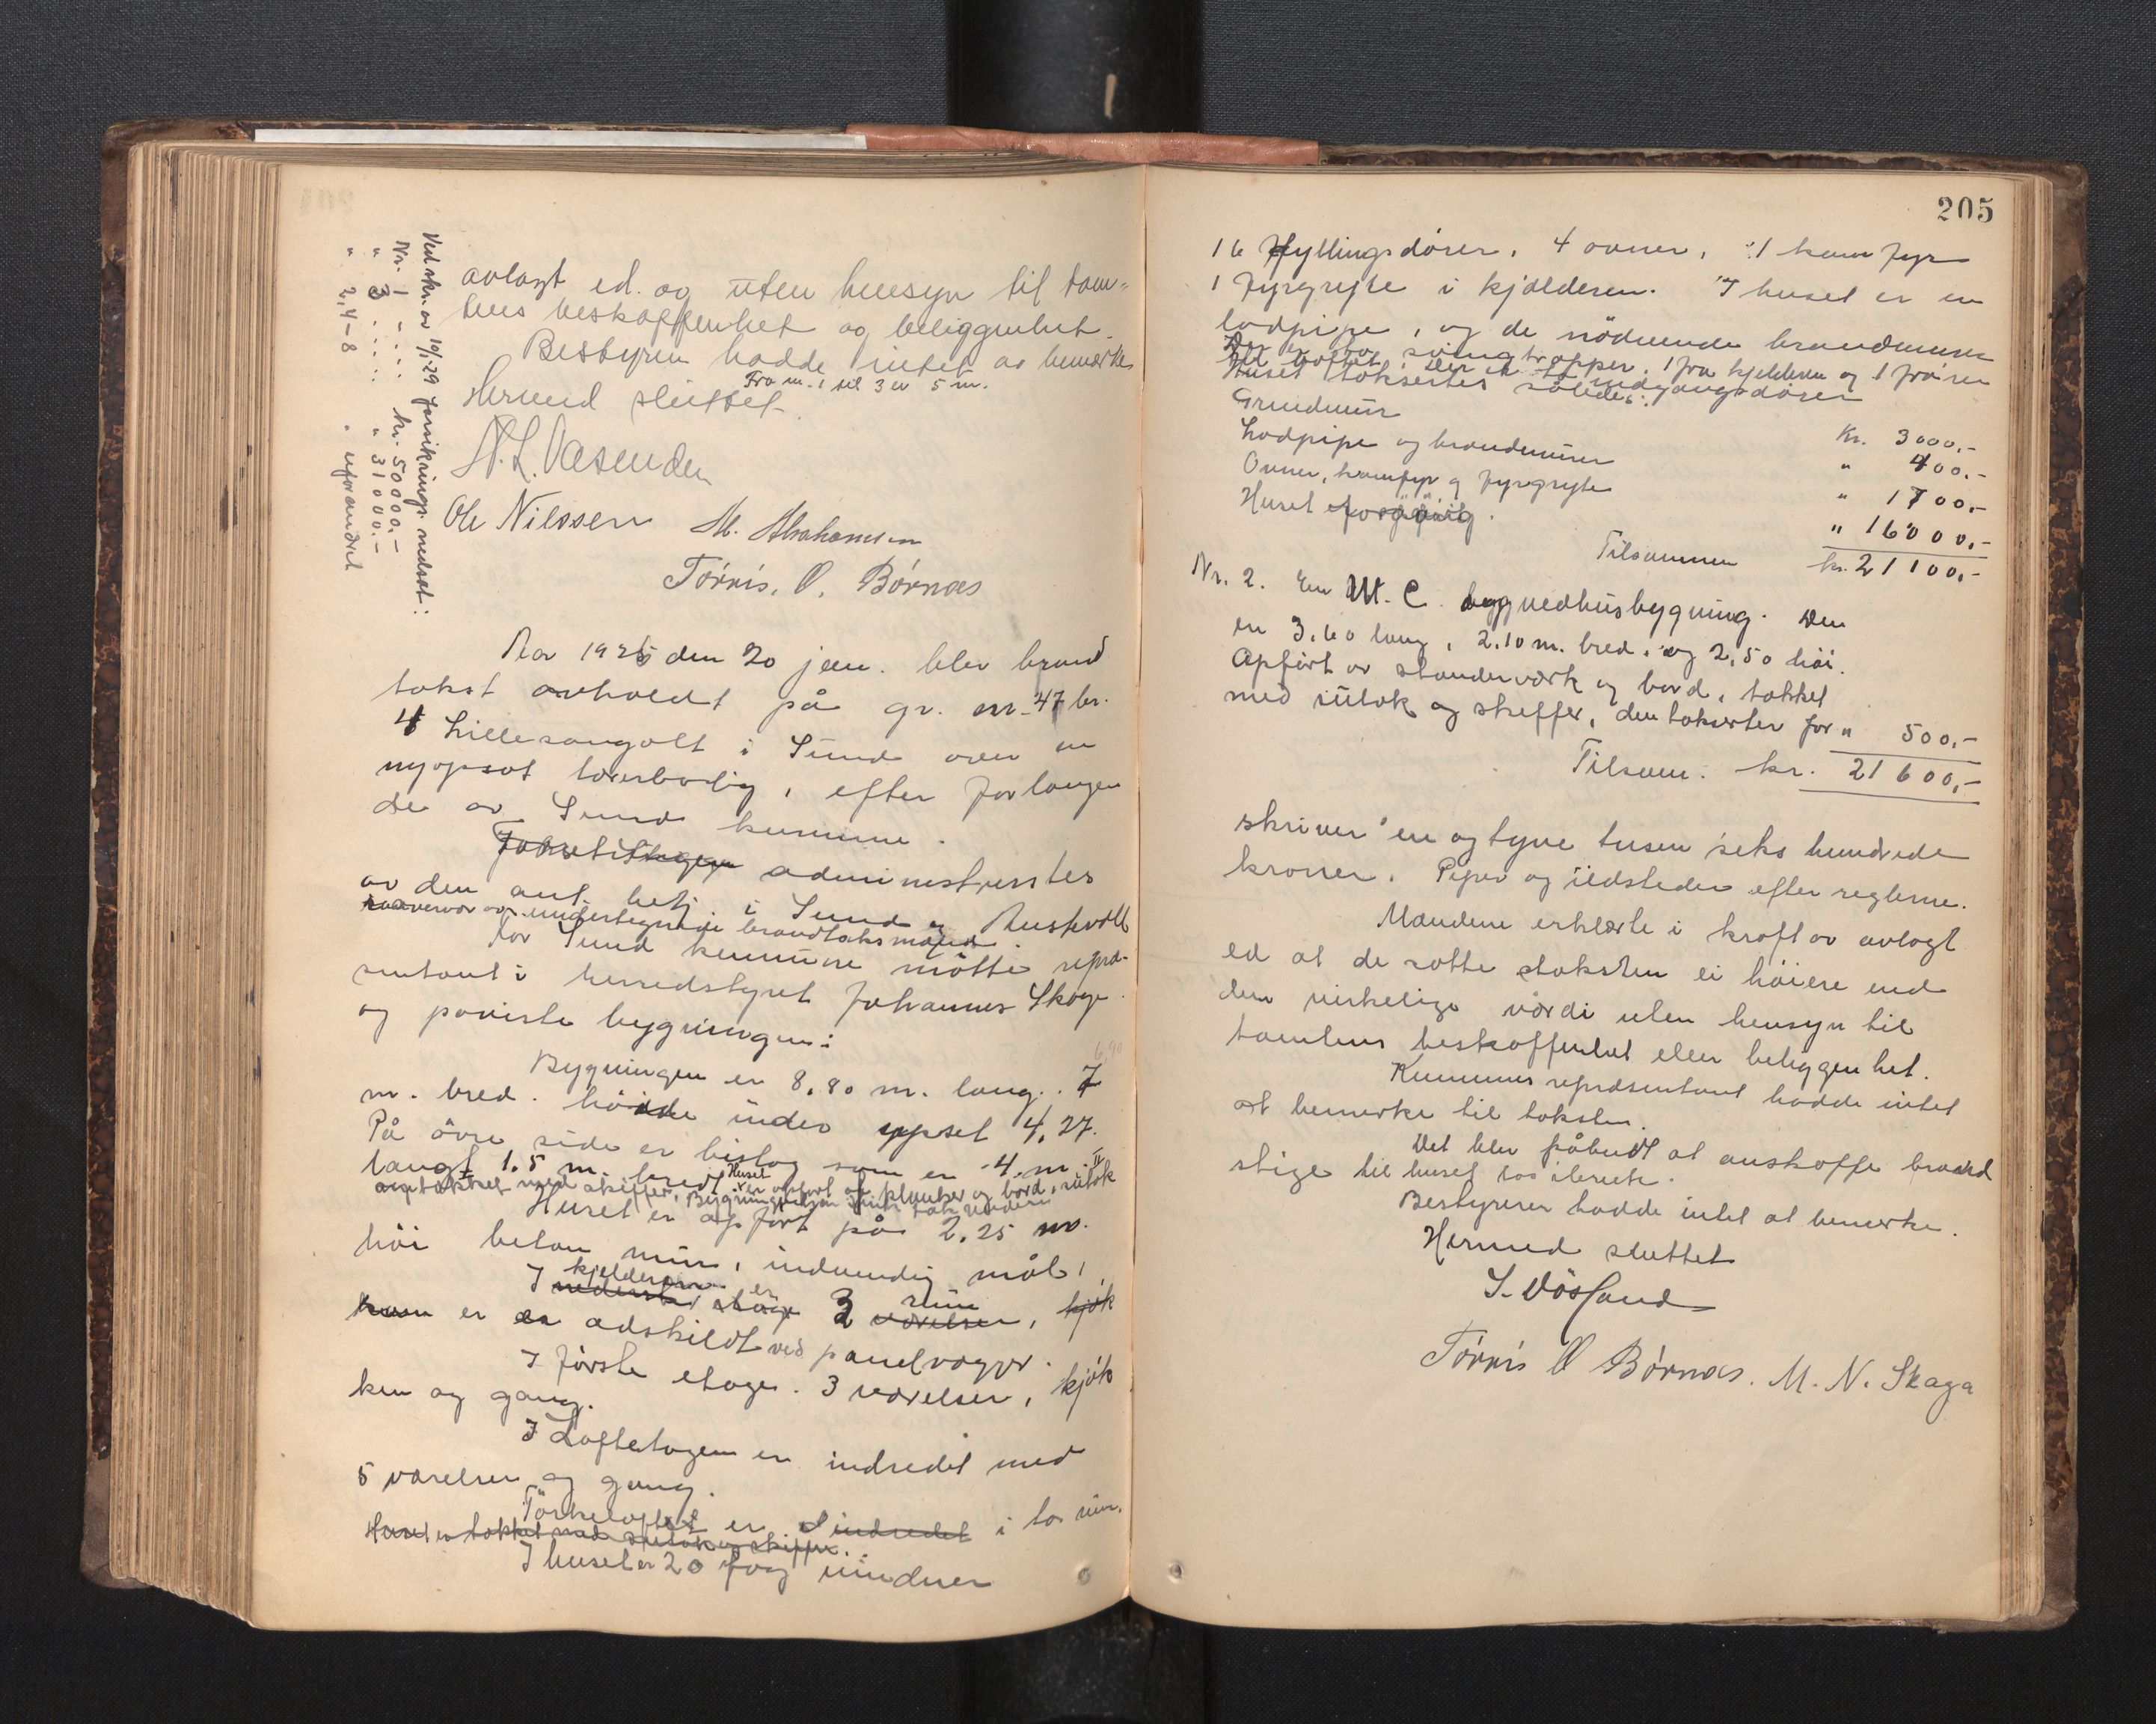 Ved skr. av 10/1-29 forsikrings. nedsat:
Nr. 1 .... kr. 50000.-
" 3 ..... " 31000.-
" 2, 4-8 " uforandret
avlagt ed. og uten hensyn til tom-
tens beskaffenhet og beliggenhet.
Bestyren hadde intet at bemærke
Fra nr. 1 til 3 er 5 m.
Herved sluttet.
N. L. Væsenden
Ole Nilssen M. Abrahamsen
Tørris. O. Børnæs
Aar 1925 den 20 jan. blev brand
takst avholdt på gr. nr. 47 br.
4 Lillesangolt i Sund over en
nyopsat lærerbolig, efter forlangen
de av Sund kommune.
administrertes
av den ant. betj. i Sund og Austevoll
undertegnede brandtaksmænd
For Sund kommune møtte repræ-
sentant i herredstyret Johannes Skoge
og påviste bygningen:
6,90
Bygningen er 8,80 m. lang. 7
m. bred. høide under upset 4,27.
På övre side er bislag som er 4 m
langt 1.5 m. bredt
Huset er opført av plunker og bord, sutak
og tækket med skiffer.
Huset er opført på 2,25 m.
høi beton mur, indvendig mål,
I kjelderen er
nederste etage 3 rum værelser, kjøk
er adskildt ved panelvægger.
I første etage. 3 værelser, kjøk
ken og gang.
I Loftetagen er indredet med
5 værelser og gang.
Törkeloftet er indredet i to rum.
Huset er tækket med sutak og skiffer.
I huset er 20 fag vinduer
205
16 Fyllingsdører, 4 ovner, 1 kamfyr
1 fyrgryte i kjælderen. I huset er en
lodpipe, og de nödvende brandmurer
Der er to svingtrapper, 1 fra kjelderen og 1 fra
til loftet, Der er to indgangsdører
Huset takseres således:
Grundmur Kr. 3000,-
Lodpipe og brandmurer " 400,-
Ovner, kamfyr og fyrgryte " 1700,-
Huset forøvrig. " 16000,-
Tilsammen kr. 21100,-
Nr. 2. En W. C. og vedhusbygning. Den
er 3,60 lang, 2,10 m. bred, og 2,50 höi.
Opført av standerværk og bord, tækket
med sutak og skeffer, den takserter for " 500,-
Tilsam. kr. 21600,-
skriver en og tyve tusen seks hundrede
kroner. Piper og ildsteder efter reglerne.
Mændene erklærte i kraft av avlagt
ed at de satte taksten ei höiere end
den virkelige værdi uten hensyn til
tomtens beskaffenhet eller beliggenhet.
Kommunes repræsentant hadde intet
at bemerke til taksten.
Det blev påbudt at anskaffe brand
stige til huset
Bestyrerer hadde intet at bemerke.
Hermed sluttet
S. Vösland
Tørris O Børnæs. M. N. Skaga